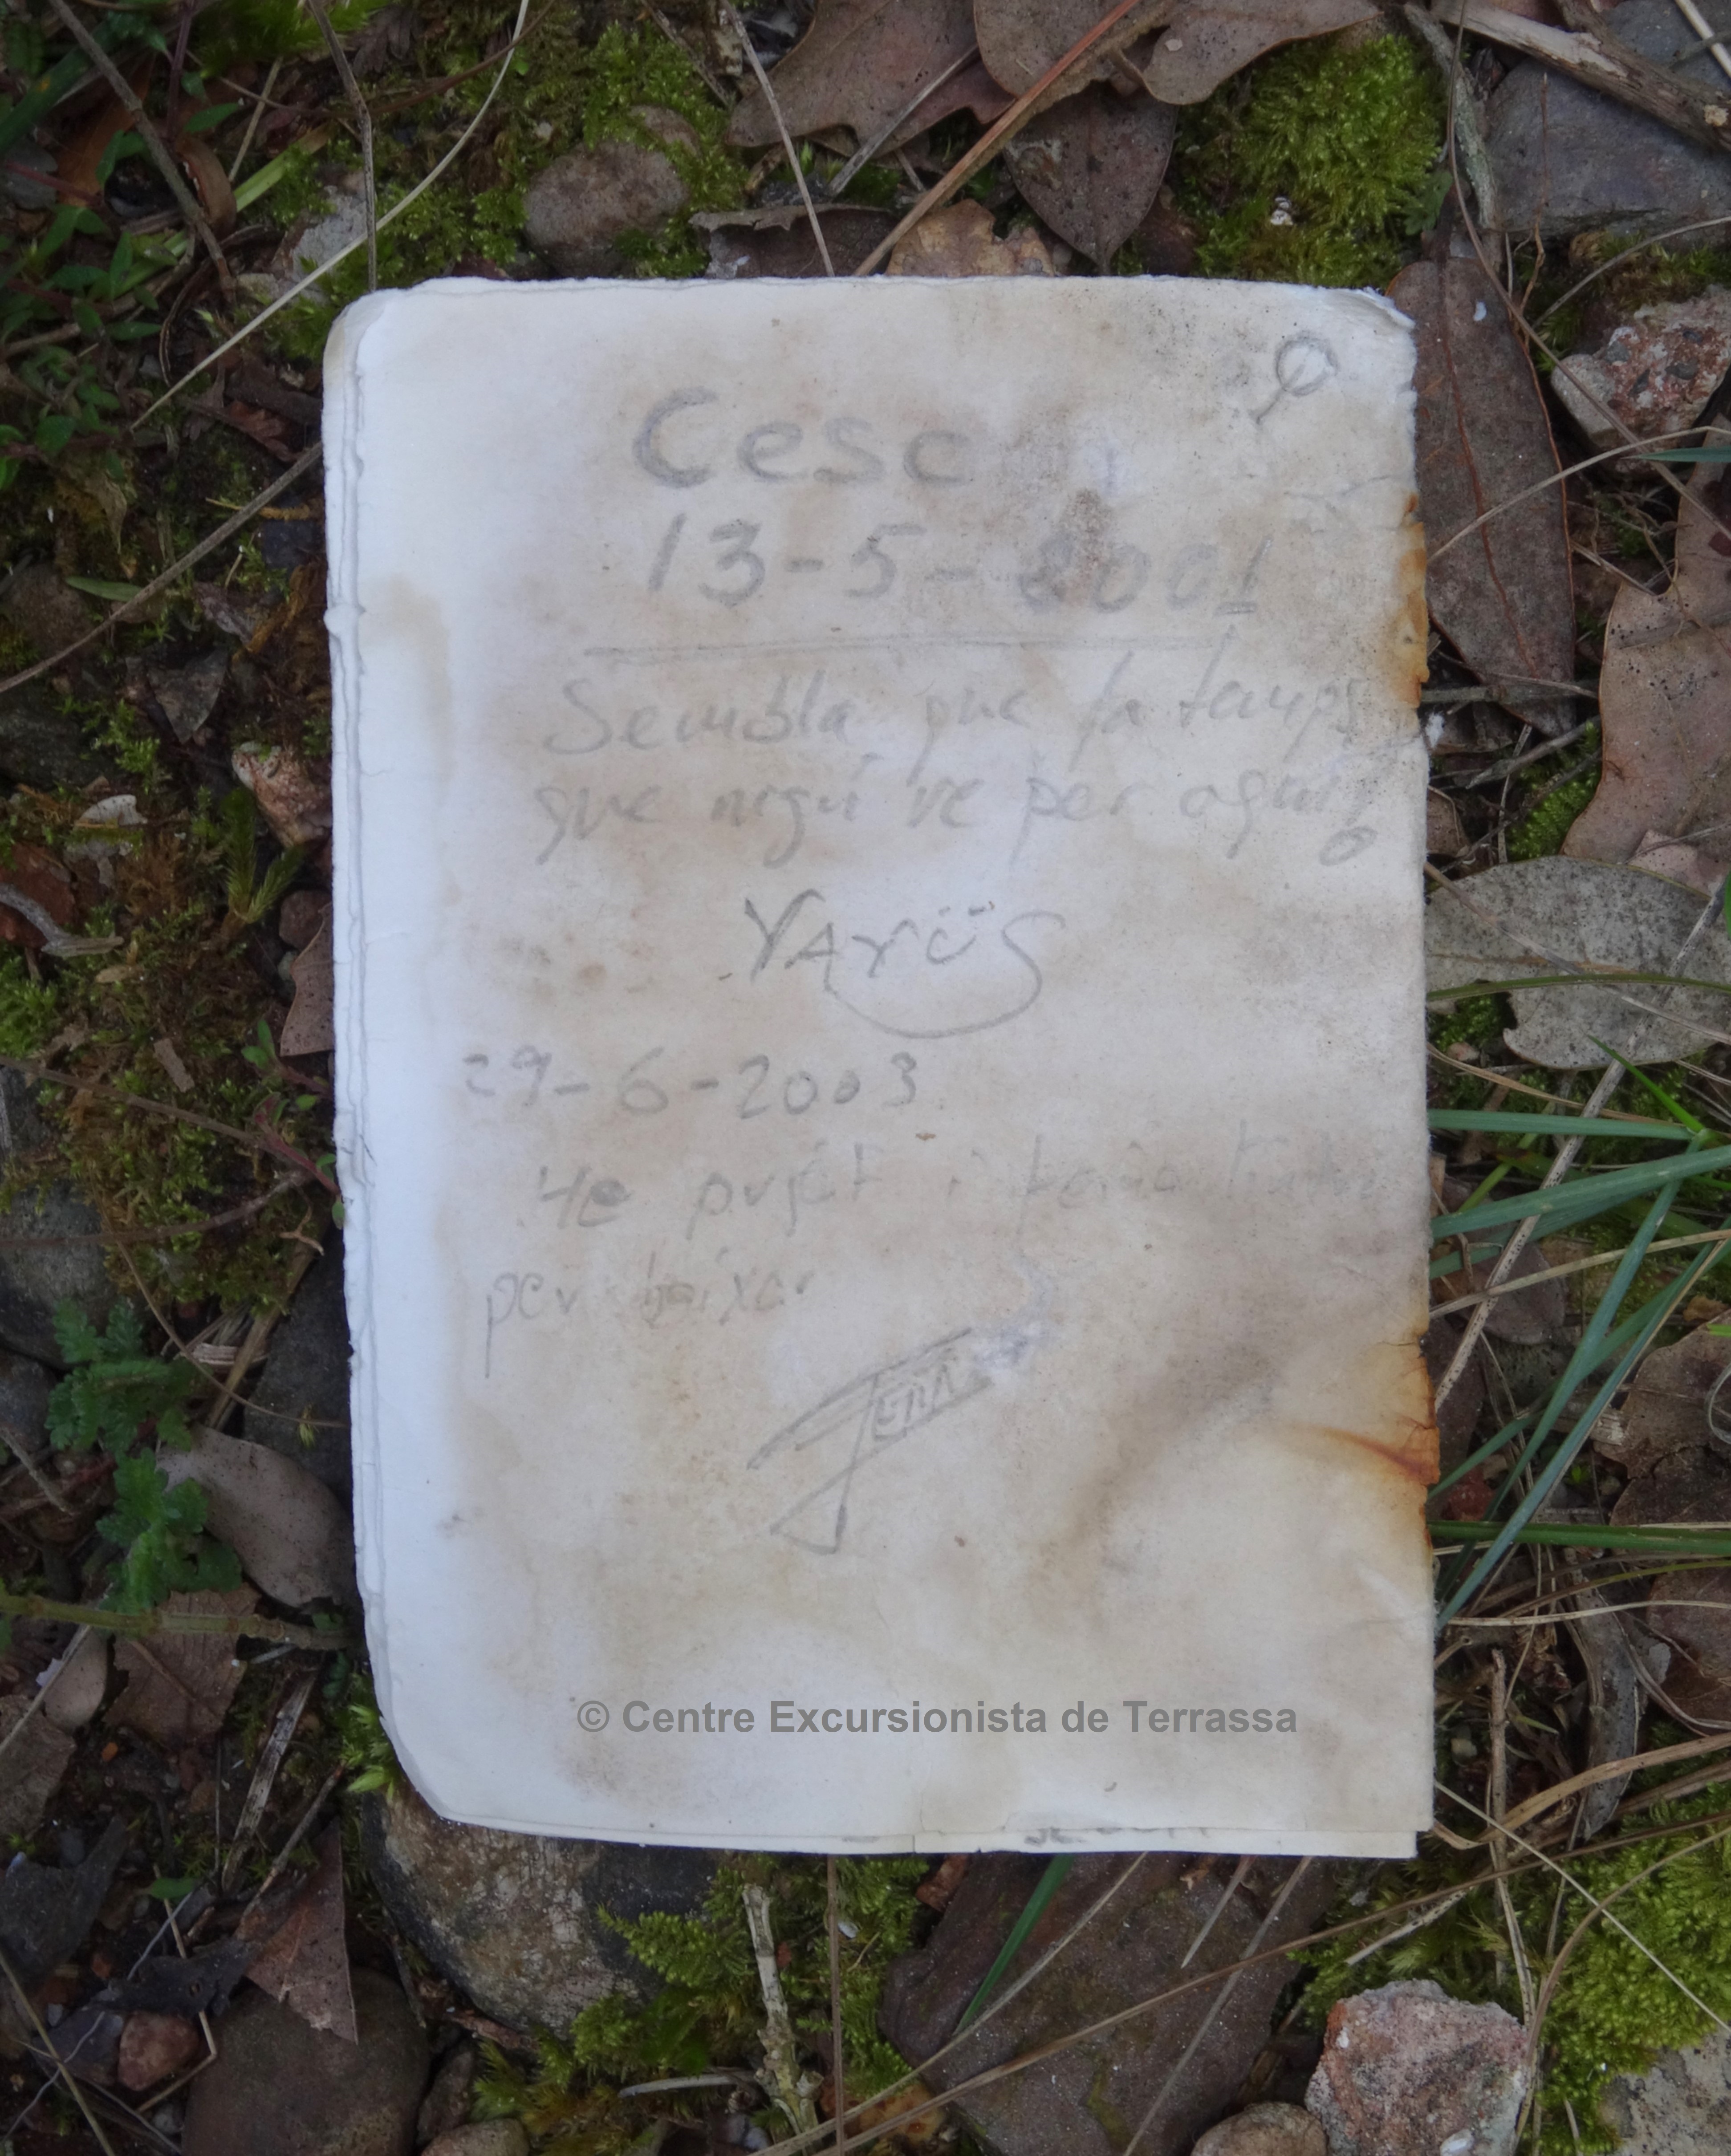 Cesc
13-5-2001
Sembla que fa temps
que nigú ve per aquí!
YAYÜS
29-6-2003
He pujat i
per baixar
© Centre Excursionista de Terrassa